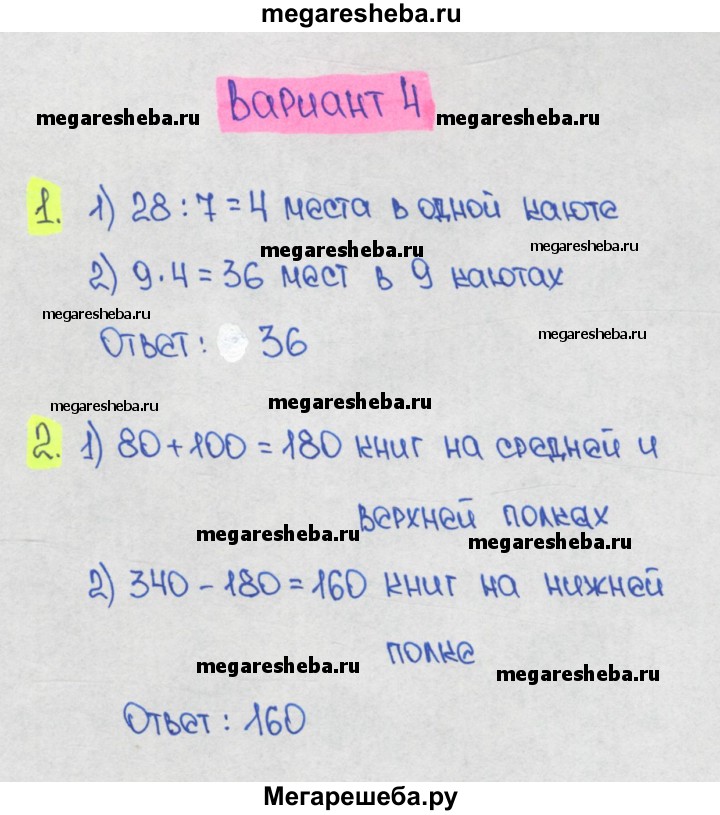 megaresheba.ru
Вариант 4
megaresheba.ru megaresheba.ru
1. 1) 28 : 7 = 4 места в одной каюте
megaresheba.ru megaresheba.ru
2) 9 · 4 = 36 мест в 9 каютах
megaresheba.ru
Ответ: 36
megaresheba.ru
megaresheba.ru megaresheba.ru
2. 1) 80 + 100 = 180 книг на средней и
верхней полках
megaresheba.ru megaresheba.ru
2) 340 - 180 = 160 книг на нижней
полке
megaresheba.ru megaresheba.ru
Ответ: 160
Мегарешеба.ру